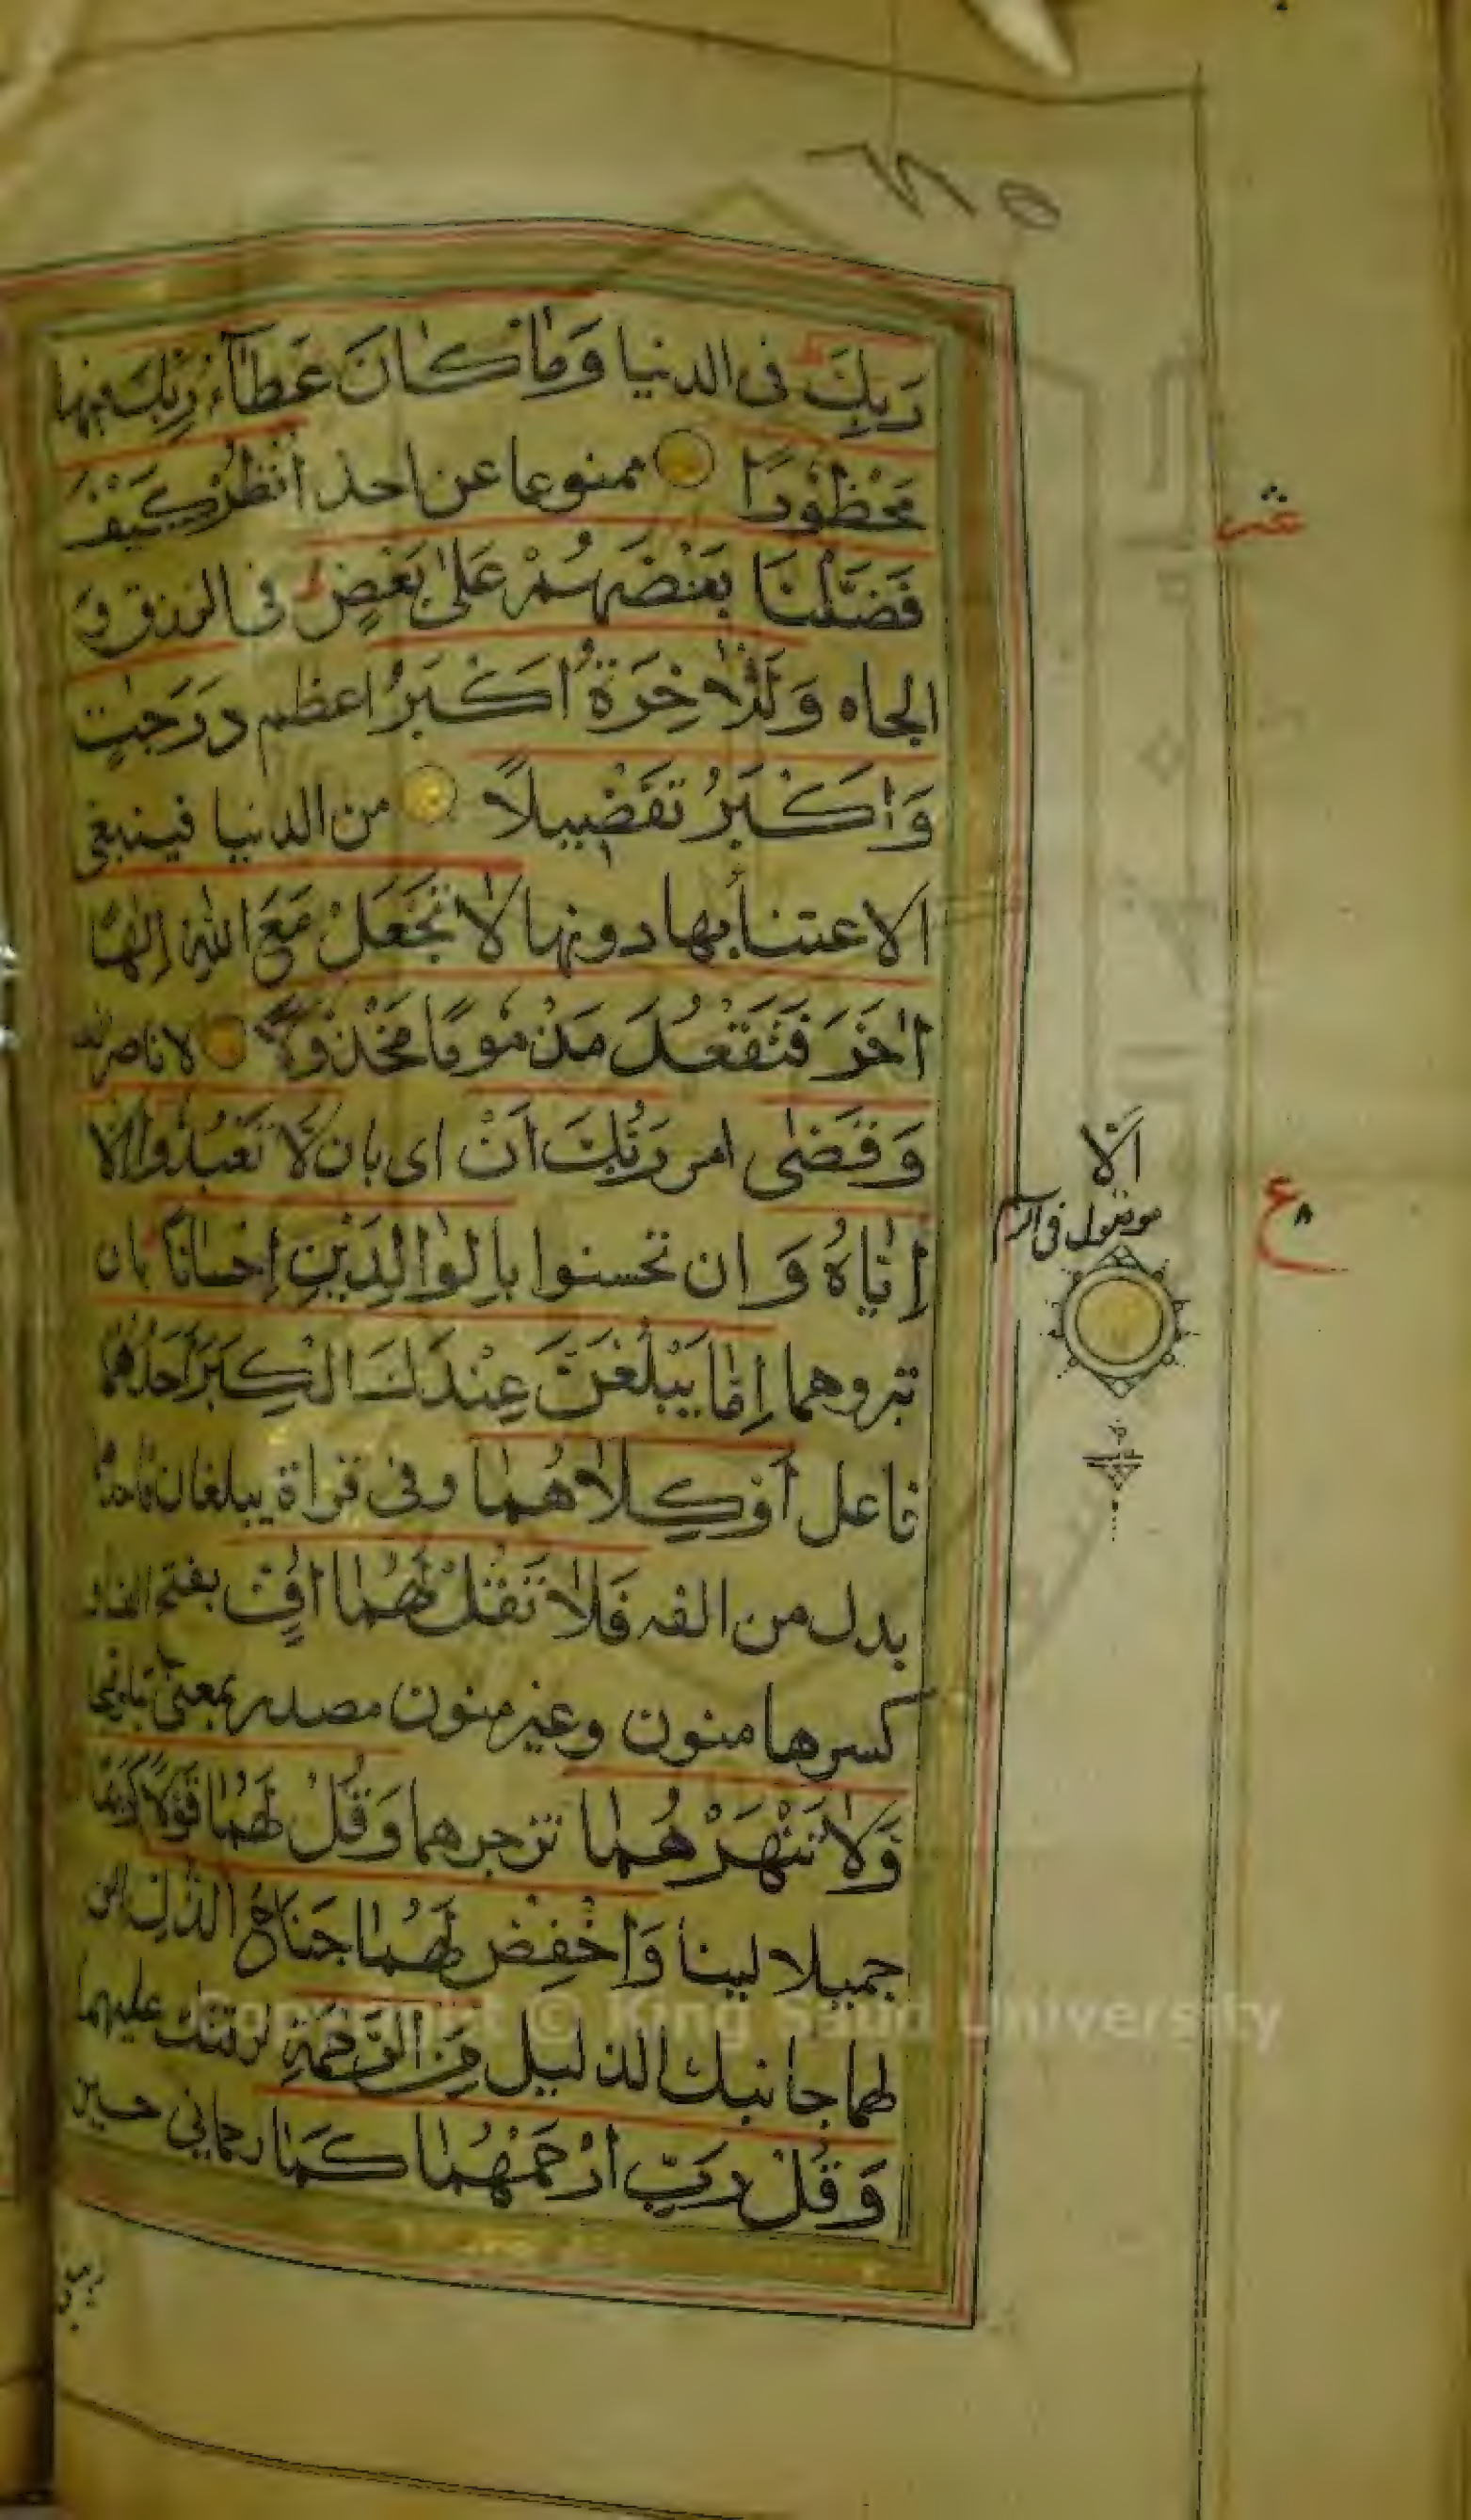 رَبِّكَ فى الدنيا وَمَا كَانَ عَطَآءُ رَبِّكَ فيها
مَحْظُوْرًا ممنوعا عن احد اُنْظُرْ كَيْفَ
فَضَّلْنَا بَعْضَهُمْ عَلٰى بَعْضٍ فى الرزق و
الجاه وَلَلْاٰخِرَةُ اَكْبَرُ اعظم دَرَجٰتٍ
وَاَكْبَرُ تَفْضِيْلًا من الدنيا فينبغى
الاعتنأ بها دونها لَا تَجْعَلْ مَعَ اللّٰهِ اِلٰهًا
اٰخَرَ فَتَقْعُدَ مَذْمُوْمًا مَخْذُوْلًا لا ناصر لك
وَقَضٰى امر رَبُّكَ اَنْ اى بان لَا تَعْبُدُوْا اِلَّا
اِيَّاهُ وَ ان تحسنوا بِالْوَالِدَيْنِ اِحْسَانًا بان
تبروهما اِمَّا يَبْلُغَنَّ عِنْدَكَ الْكِبَرَ اَحَدُهُمَا
فاعل اَوْ كِلَاهُمَا وفى قراة يبلغان فاحدهما
بدل من الفه فَلَا تَقُلْ لَهُمَا اُفٍّ بفتح الفا و
كسرها منون وغير منون مصدر بمعنى تبا وقبحا
وَلَا تَنْهَرْهُمَا تزجرهما وَقُلْ لَهُمَا قَوْلًا كَرِيْمًا
جميلا لينا وَاخْفِضْ لَهُمَا جَنَاحَ الذُّلِّ الن
لهما جانبك الذليل مِنَ الرَّحْمَةِ لرقتك عليهما
وَقُلْ رَبِّ ارْحَمْهُمَا كَمَا رحمانى حين
اَنْ لا
موصول فى الرسم
ع ٨